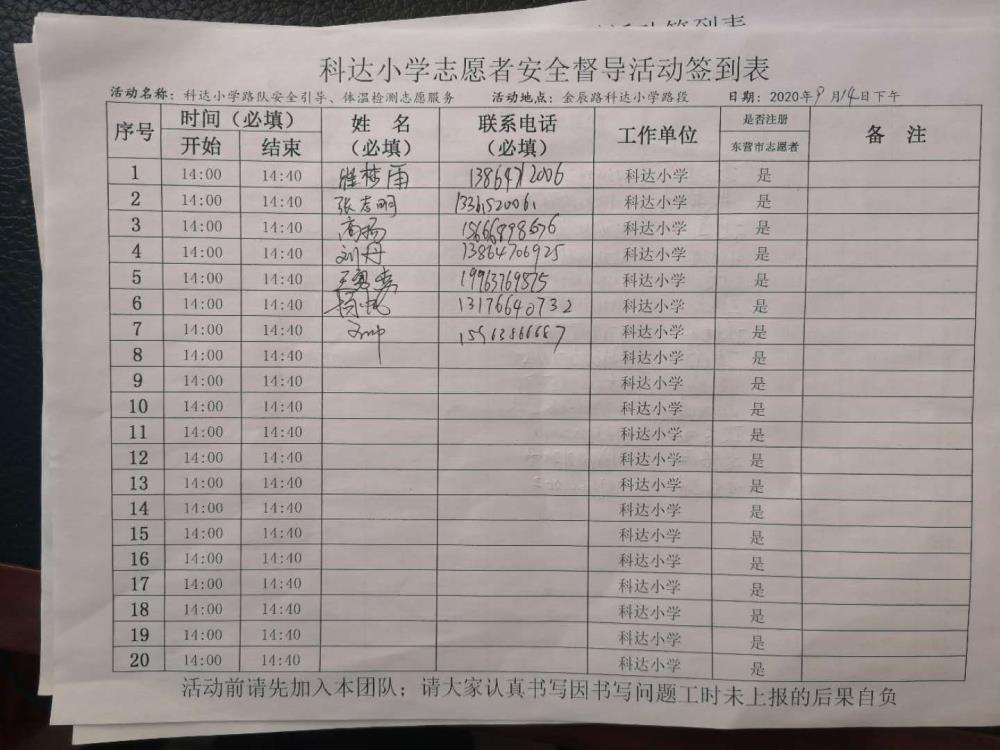 科达小学志愿者安全督导活动签到表
活动名称：科达小学路队安全引导、体温检测志愿服务 活动地点：金辰路科达小学路段 日期：2020年9月14日下午
序号 时间（必填） 姓 名 联系电话 工作单位 是否注册 备 注
开始 结束 （必填） （必填） 东营市志愿者
1 14:00 14:40 梦雨 13864712006 科达小学 是
2 14:00 14:40 张志明 13361520061 科达小学 是
3 14:00 14:40 高扬 15666998676 科达小学 是
4 14:00 14:40 刘丹 13864706925 科达小学 是
5 14:00 14:40 19963769875 科达小学 是
6 14:00 14:40 杨帆 13176640732 科达小学 是
7 14:00 14:40 科达小学 是
8 14:00 14:40 科达小学 是
9 14:00 14:40 科达小学 是
10 14:00 14:40 科达小学 是
11 14:00 14:40 科达小学 是
12 14:00 14:40 科达小学 是
13 14:00 14:40 科达小学 是
14 14:00 14:40 科达小学 是
15 14:00 14:40 科达小学 是
16 14:00 14:40 科达小学 是
17 14:00 14:40 科达小学 是
18 14:00 14:40 科达小学 是
19 14:00 14:40 科达小学 是
20 14:00 14:40 科达小学 是
活动前请先加入本团队；请大家认真书写因书写问题工时未上报的后果自负